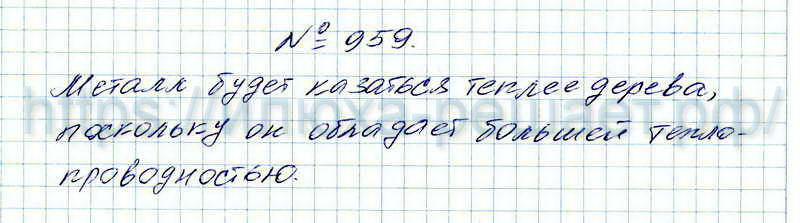 № 959.
Металл будет казаться теплее дерева,
поскольку он обладает большей тепло-
проводностью.